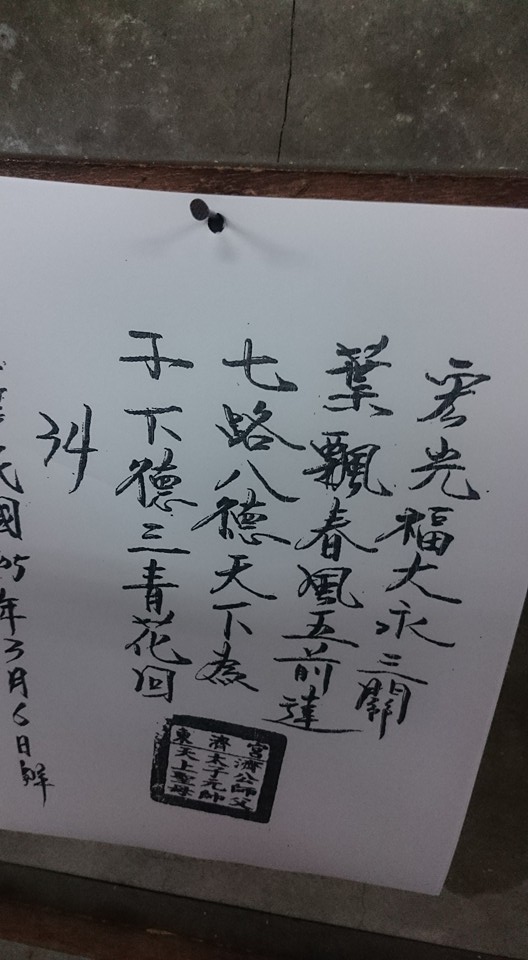 宏光福大永三關
葉飄春風五前達
七路八德天下為
子下德三青花回
孑
民國105年3月6日鮮
宮濟公師父
濟太子元帥
東天上聖母